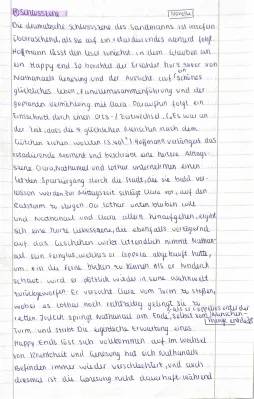 Schlussszene
Novelle
Die dramatische Schlussszene des Sandmanns ist insofern
überraschend, als sie auf ein retardierendes Moment folgt.
Hoffmann lässt den Leser zunächst in dem Glauben an
ein Happy End. So berichtet der Erzähler kurz zuvor von
Nathanaels Genesung und der Aussicht auf ein schönes
glückliches Leben. Familienzusammenführung und der
geplanten Vermählung mit Clara. Daraufhin folgt ein
Einschnitt durch einen Orts- / Zeitwechsel. („Es war an
der Zeit, dass die 4 glücklichen Menschen nach dem
Gütchen ziehen wollten“) Hoffmann verlängert das
retardierende Moment und beschreibt eine heitere Alltags-
szene. Clara, Nathanael und Lothar unternehmen einen
letzten Spaziergang durch die Stadt, die sie bald ver-
lassen werden. Zur Mittagszeit schlägt Clara vor, auf den
Ratsturm zu steigen. Da Lothar unten bleiben will
und Nathanael und Clara allein hinaufgehen, ergibt
sich eine kurze Liebesszene, die ebenfalls verzögernd
auf das Geschehen wirkt. Letztendlich nimmt Nathan-
ael sein Fernglas, welches er Coppola abgekauft hatte,
um in die Ferne blicken zu können. Als er hindurch
schaut, wird er plötzlich wieder in seine Wahnwelt
zurückgeworfen. Er versucht Clara vom Turm zu stoßen,
wobei es Lothar noch rechtzeitig gelingt sie zu
retten. Jedoch springt Nathanael am Ende selbst vom
als er Coppelius unter der Menschen-
menge entdeckt
Turm und stirbt. Die eigentliche Erwartung eines
Happy Ends löst sich vollkommen auf. Im Wechsel
von Krankheit und Genesung hat sich Nathanaels
Befinden immer wieder verschlechtert, und auch
diesmal ist die Genesung nicht dauerhaft. Während